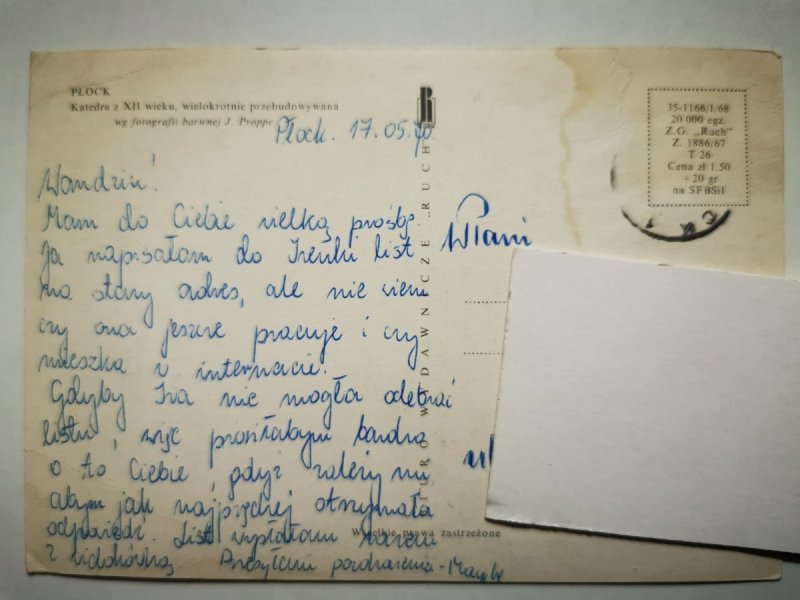 PŁOCK
Katedra z XII wieku, wielokrotnie przebudowywana
wg fotografii barwnej J. Proppe
Płock. 17.05.70
Wandziu!
Mam do Ciebie wielką prośbę
Ja napisałam do Irenki list
na stary adres, ale nie wiem
czy ona jeszcze pracuje i czy
mieszka w internacie.
Gdyby Ira nie mogła odebrać
listu, więc prosiłabym bardzo
o to Ciebie, gdyż zależy mi
abym jak najprędzej otrzymała
odpowiedź. List wysłałam razem
z widokówką Przesyłam pozdrowienia -
BIURO WYDAWNICZE „RUCH"
35-1166/1/68
20 000 egz.
Z.G. „Ruch"
Z. 1886/67
T 26
Cena zł 1,50
+ 20 gr
na SFBSiI
WPani
ul
Wszelkie prawa zastrzeżone